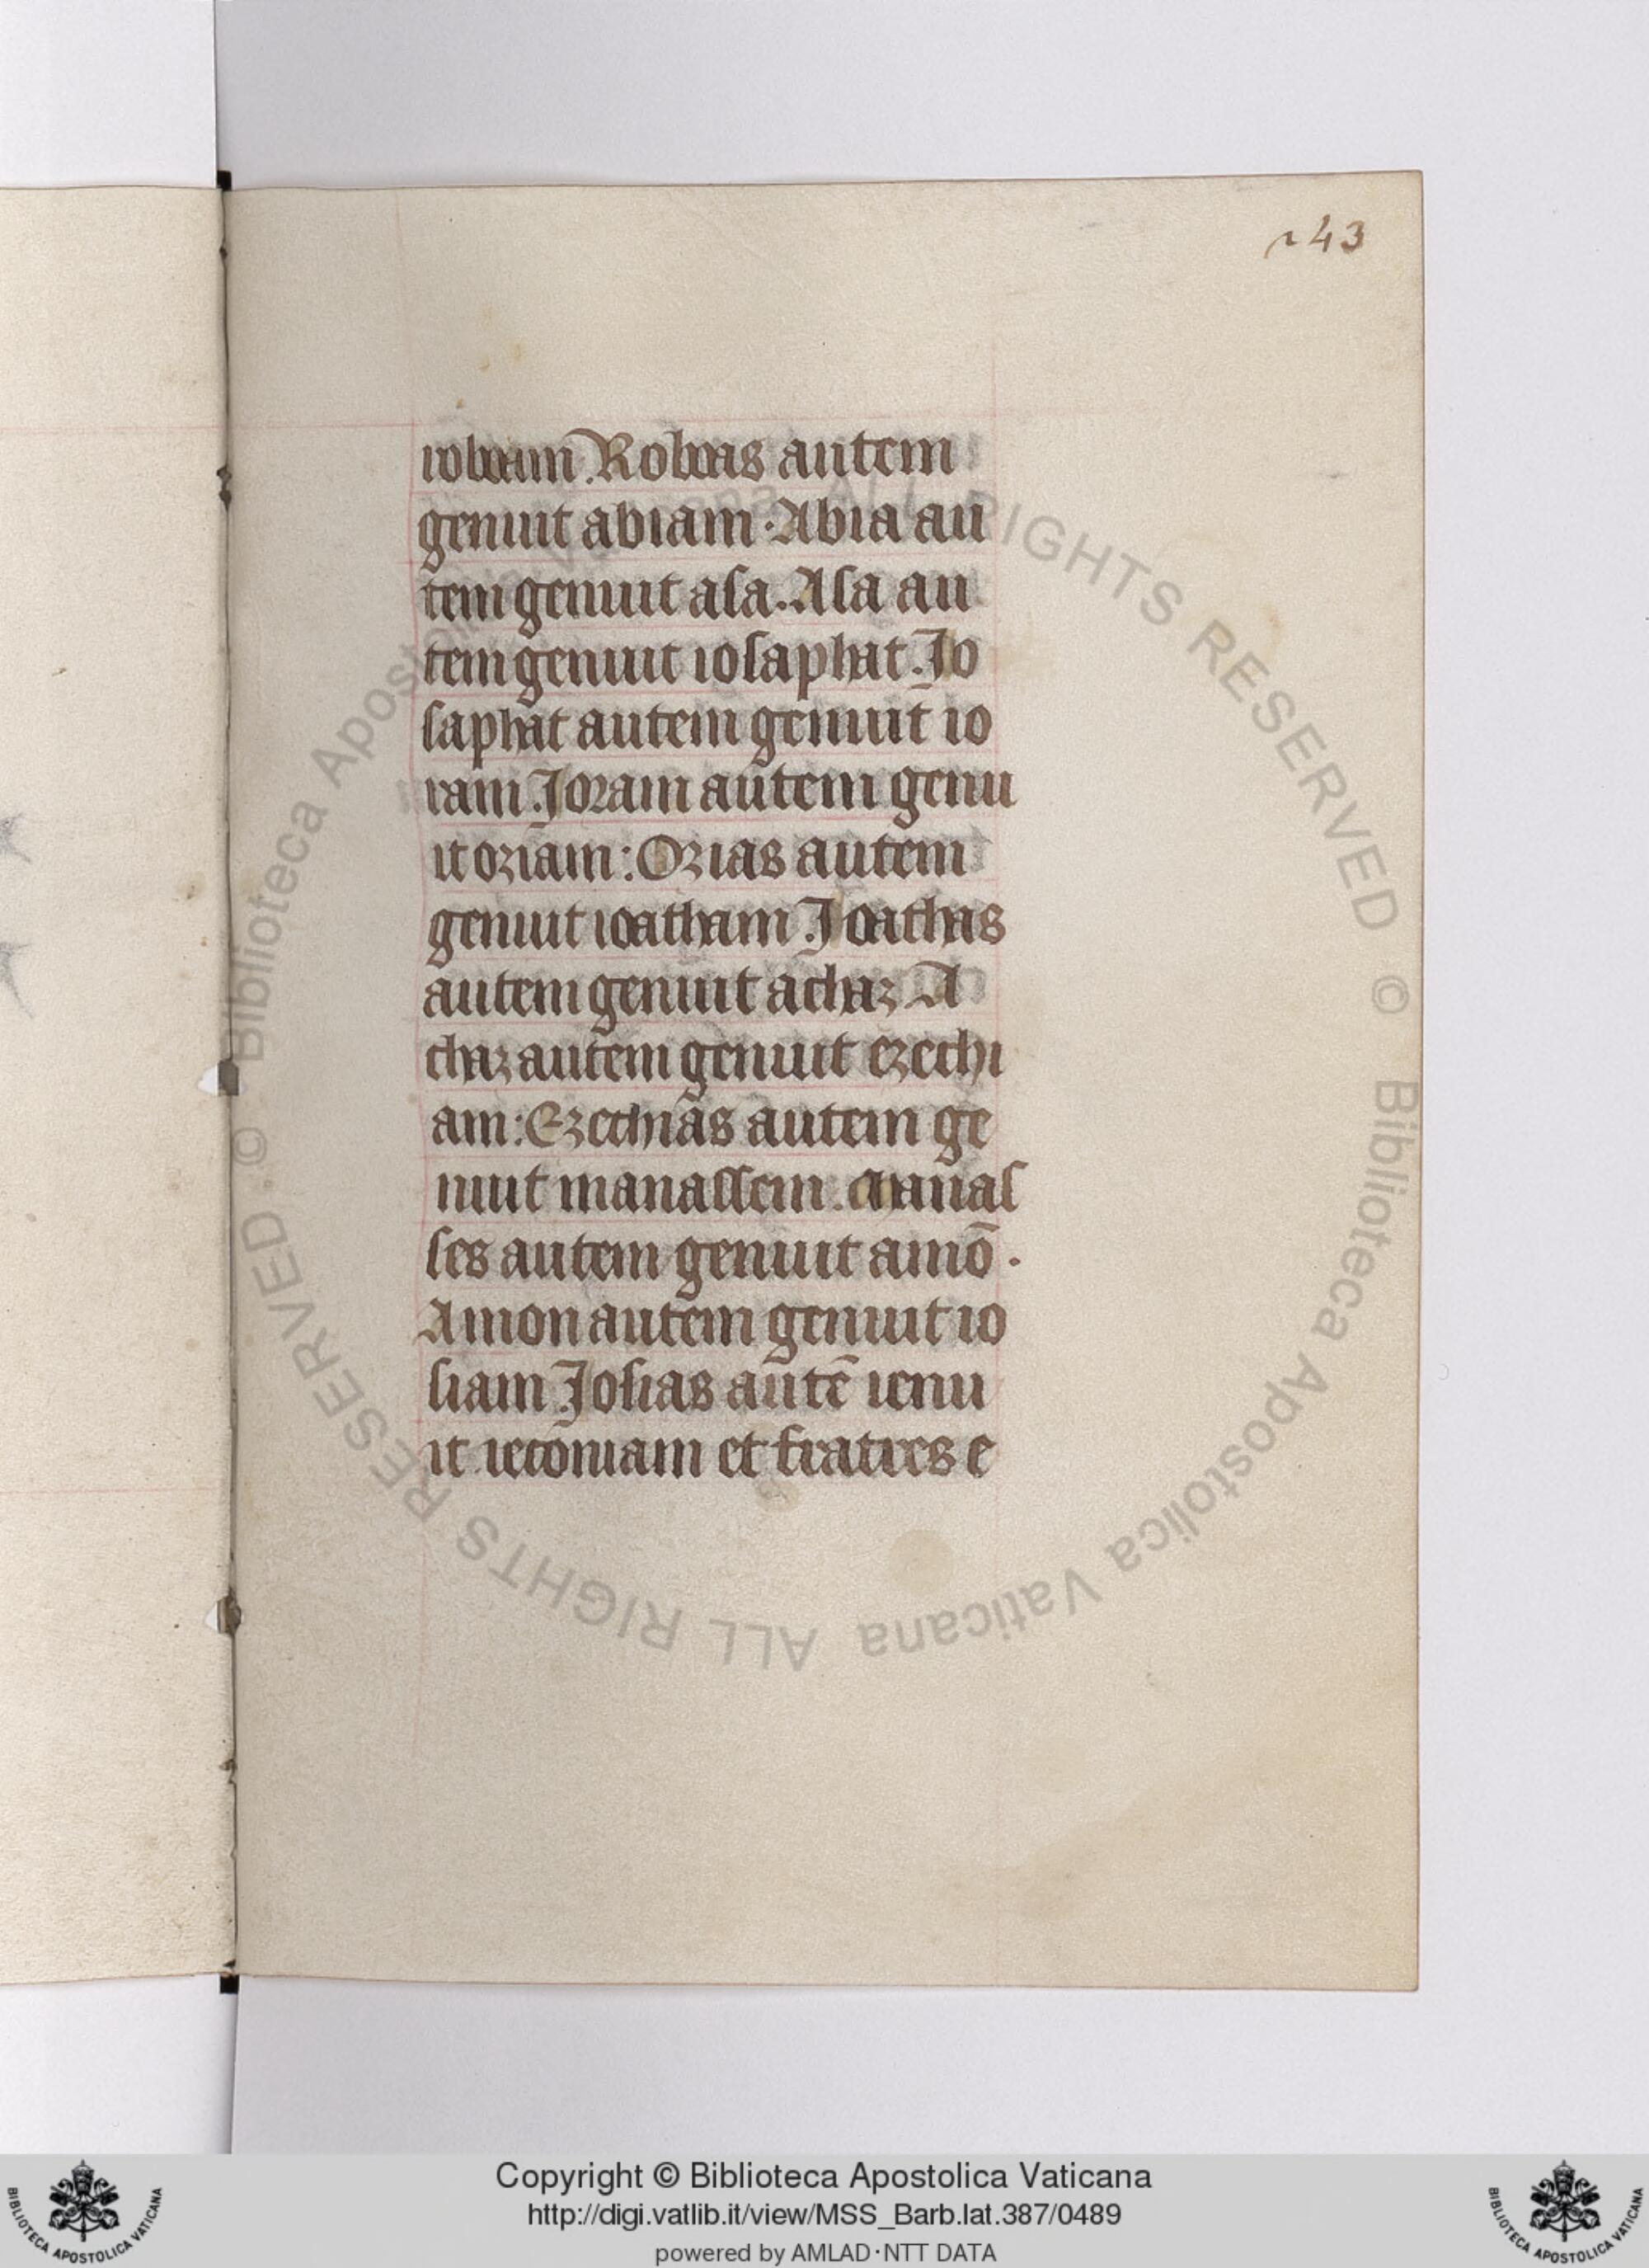 243
roboam. Roboas autem
genuit abiam. Abia au
tem genuit asa. Asa au
tem genuit iosaphat. Jo
saphat autem genuit io
ram. Joram autem genu
it oziam: Ozias autem
genuit ioatham. Joathas
autem genuit achaz. A
chaz autem genuit ezechi
am: Ezechias autem ge
nuit manassem. Manas
ses autem genuit amō.
Amon autem genuit io
siam. Josias autē ienu
it ieconiam et fratres e
© Biblioteca Apostolica Vaticana ALL RIGHTS RESERVED © Biblioteca Apostolica Vaticana ALL RIGHTS RESERVED
Copyright © Biblioteca Apostolica Vaticana
http://digi.vatlib.it/view/MSS_Barb.lat.387/0489
powered by AMLAD·NTT DATA
BIBLIOTECA APOSTOLICA VATICANA
BIBLIOTECA APOSTOLICA VATICANA